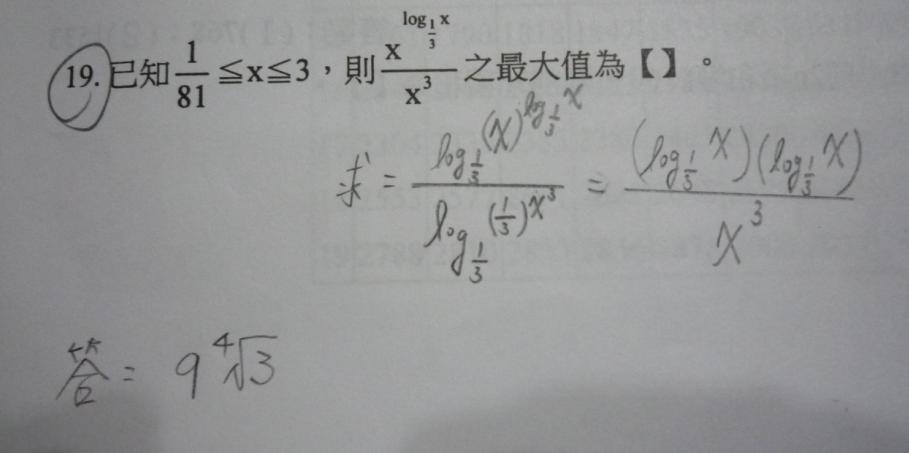 19. 已知 1/81 ≦x≦3，則 x^(log_(1/3) x) / x^3 之最大值為【 】。
求 = log_(1/3) (x)^(log_(1/3) x) / log_(1/3) (1/3)^(x^3) = (log_(1/3) x)(log_(1/3) x) / x^3
答 = 9 ∜3